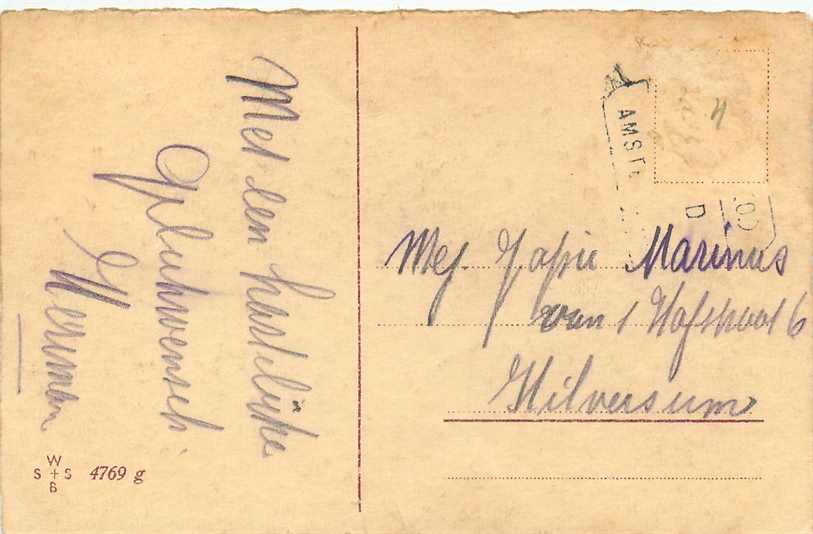 Met een hartelijke
Gelukwensch.
Herman
W
S + S 4769 g
B
4
AMST
D
Mej. Jopie Marinus
van 't Hofstraat 6
Hilversum